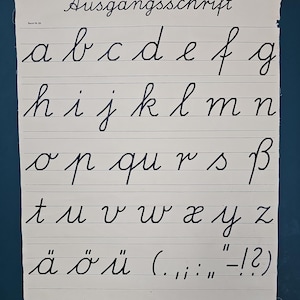 Ausgangsschrift
a b c d e f g
h i j k l m n
o p qu r s ß
t u v w x y z
ä ö ü (.,;:„"–!?)